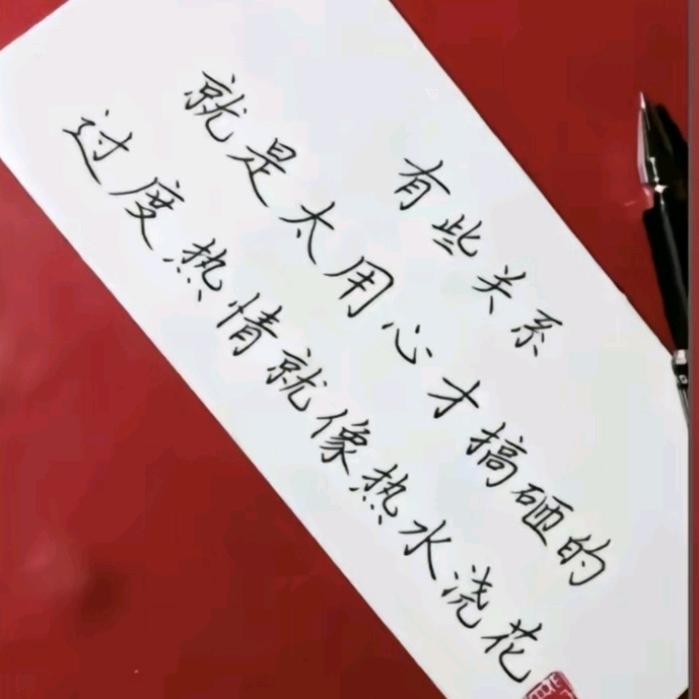 有些关系
就是太用心才搞砸的
过度热情就像热水浇花